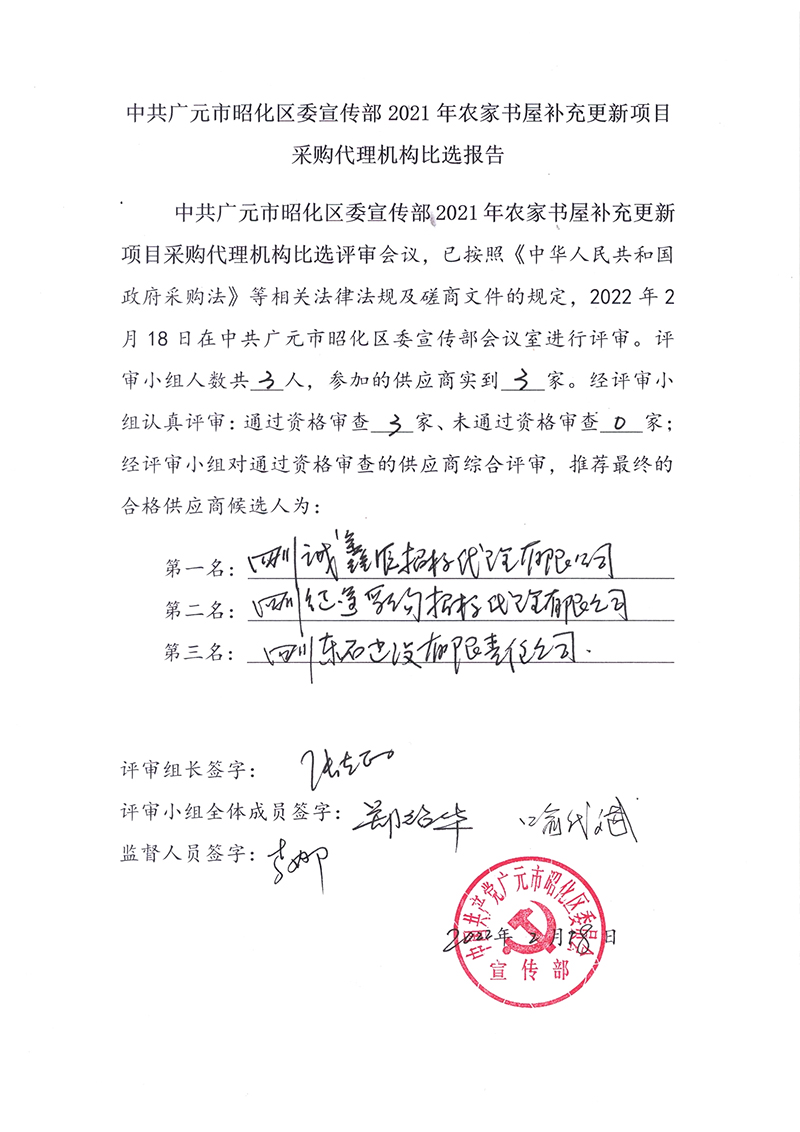 中共广元市昭化区委宣传部 2021 年农家书屋补充更新项目
采购代理机构比选报告
中共广元市昭化区委宣传部 2021 年农家书屋补充更新
项目采购代理机构比选评审会议，已按照《中华人民共和国
政府采购法》等相关法律法规及磋商文件的规定，2022 年 2
月 18 日在中共广元市昭化区委宣传部会议室进行评审。评
审小组人数共 3 人，参加的供应商实到 3 家。经评审小
组认真评审：通过资格审查 3 家、未通过资格审查 0 家；
经评审小组对通过资格审查的供应商综合评审，推荐最终的
合格供应商候选人为：
第一名：四川诚鑫 招标代理有限公司
第二名：四川 招标代理有限公司
第三名：四川东石建设有限责任公司.
评审组长签字：
评审小组全体成员签字：郑 华 喻代斌
监督人员签字：李娜
中国共产党广元市昭化区委员会
2022年 2 月 18 日
宣传部